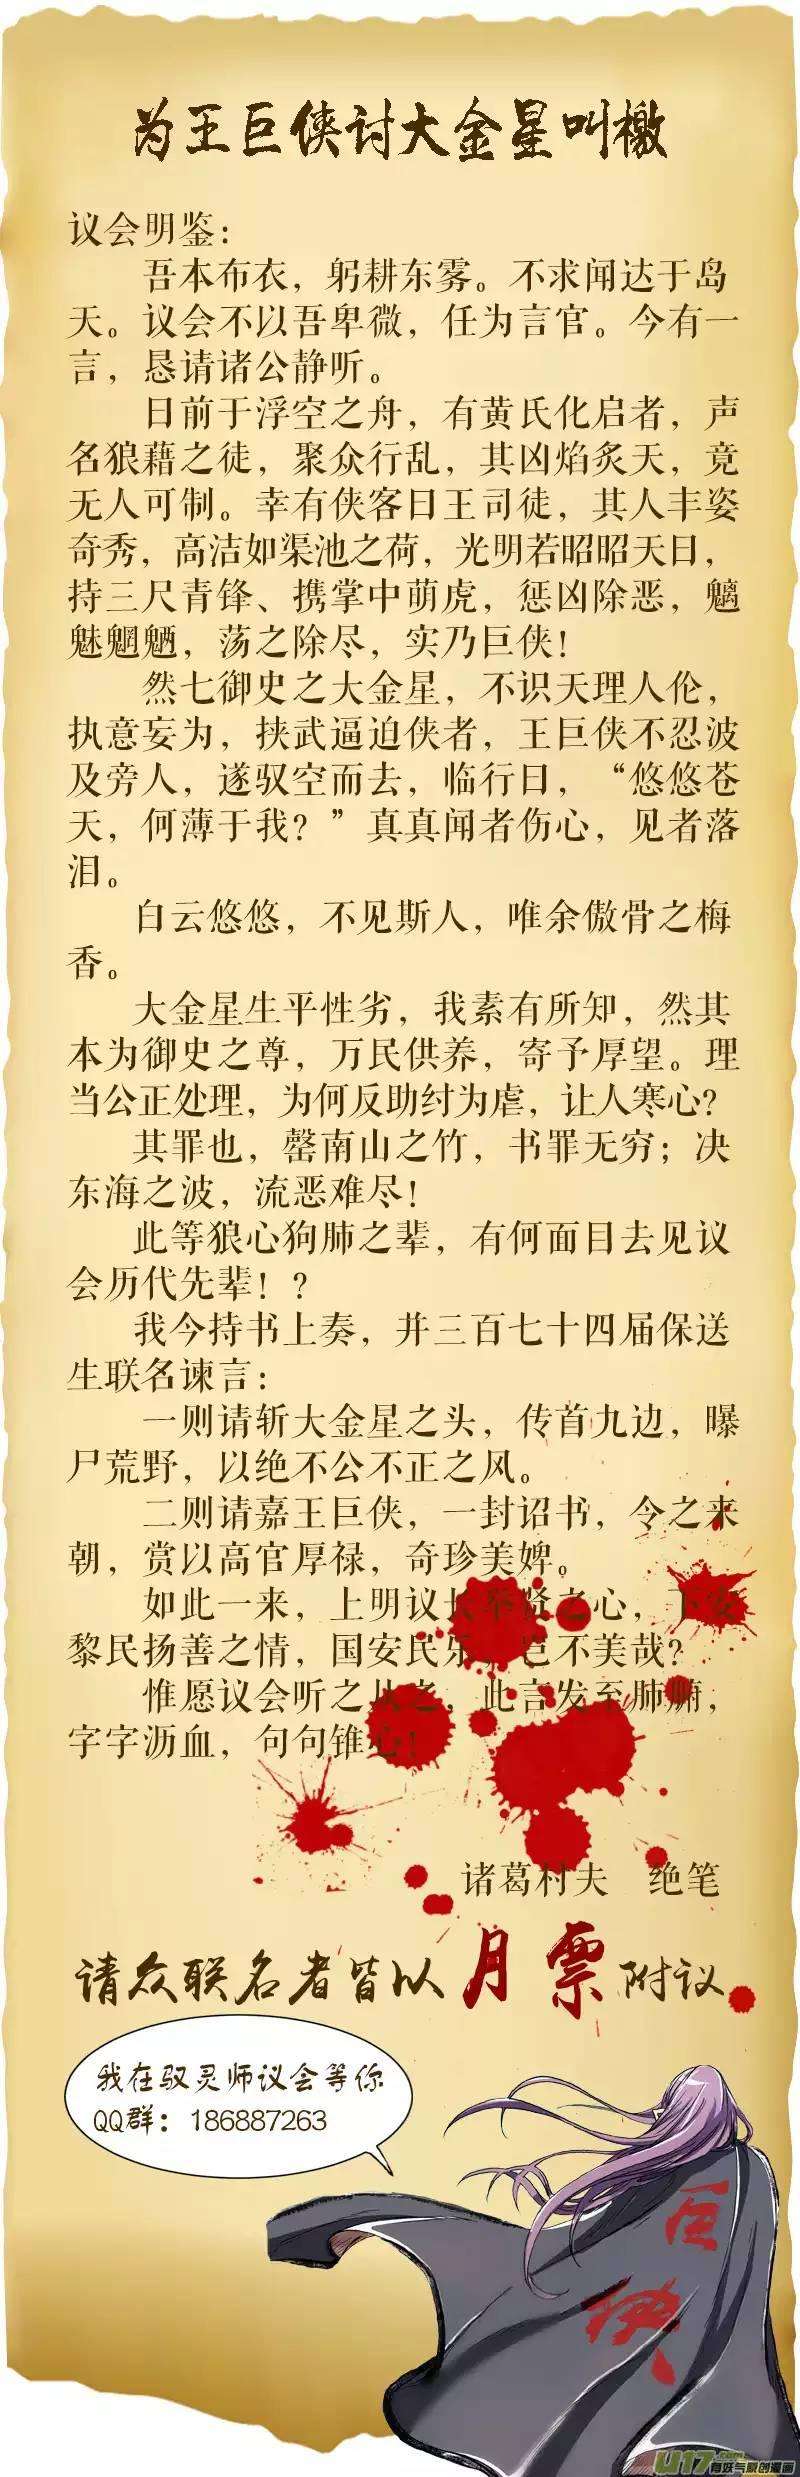 为王巨侠讨大金星叫檄
议会明鉴：
吾本布衣，躬耕东雾。不求闻达于岛
天。议会不以吾卑微，任为言官。今有一
言，恳请诸公静听。
日前于浮空之舟，有黄氏化启者，声
名狼藉之徒，聚众行乱，其凶焰炙天，竟
无人可制。幸有侠客曰王司徒，其人丰姿
奇秀，高洁如渠池之荷，光明若昭昭天日，
持三尺青锋、携掌中萌虎，惩凶除恶，魑
魅魍魉，荡之除尽，实乃巨侠！
然七御史之大金星，不识天理人伦，
执意妄为，挟武逼迫侠者，王巨侠不忍波
及旁人，遂驭空而去，临行曰，“悠悠苍
天，何薄于我？”真真闻者伤心，见者落
泪。
白云悠悠，不见斯人，唯余傲骨之梅
香。
大金星生平性劣，我素有所知，然其
本为御史之尊，万民供养，寄予厚望。理
当公正处理，为何反助纣为虐，让人寒心？
其罪也，罄南山之竹，书罪无穷；决
东海之波，流恶难尽！
此等狼心狗肺之辈，有何面目去见议
会历代先辈！？
我今持书上奏，并三百七十四届保送
生联名谏言：
一则请斩大金星之头，传首九边，曝
尸荒野，以绝不公不正之风。
二则请嘉王巨侠，一封诏书，令之来
朝，赏以高官厚禄，奇珍美婢。
如此一来，上明议长举贤之心，下安
黎民扬善之情，国安民乐，岂不美哉？
惟愿议会听之从之，此言发至肺腑，
字字沥血，句句锥心！
诸葛村夫 绝笔
请众联名者皆以月票附议
我在驭灵师议会等你
QQ群：186887263
巨侠
U17.com
有妖气原创漫画